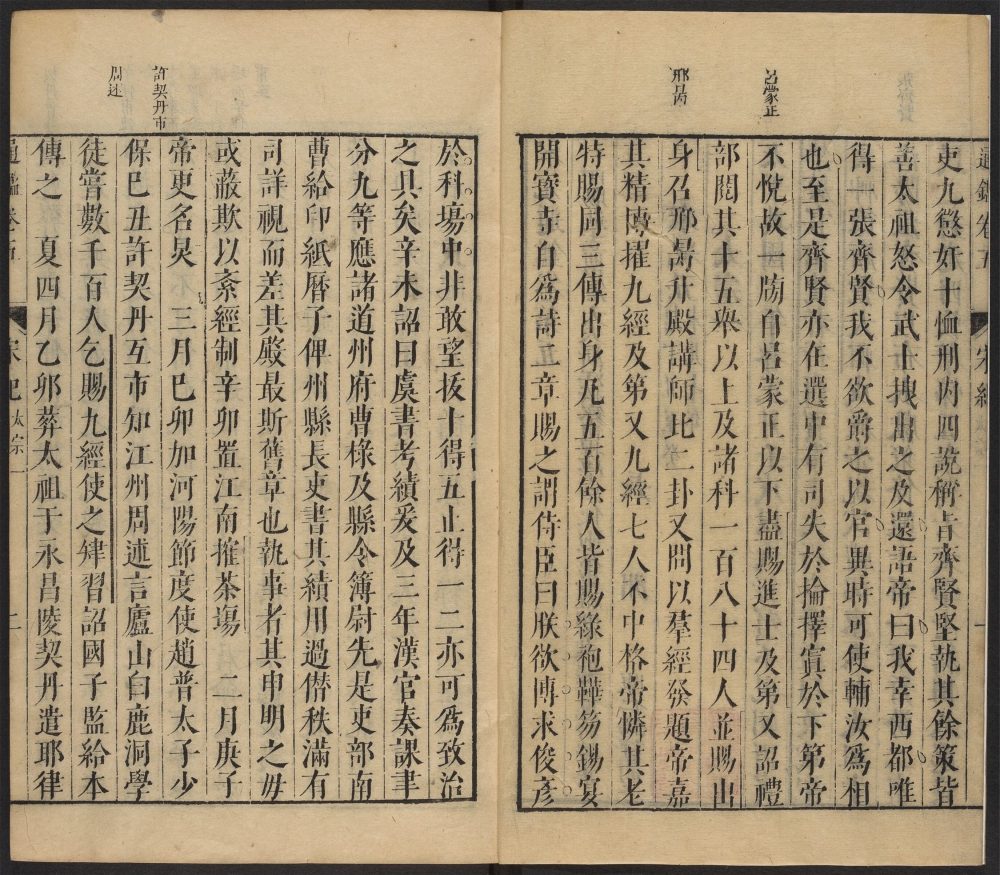 呂蒙正
邢昺
通鑑卷五
宋紀
一
吏九懲奸十恤刑内四說稱旨齊賢堅執其餘策皆
善太祖怒令武士拽出之及還語帝曰我幸西都唯
得一張齊賢我不欲爵之以官異時可使輔汝爲相
也至是齊賢亦在選中有司失於掄擇寘於下第帝
不悅故一牓自呂蒙正以下盡賜進士及第又詔禮
部閱其十五舉以上及諸科一百八十四人並賜出
身召邢昺升殿講師比二卦又問以羣經發題帝嘉
其精博擢九經及第又九經七人不中格帝憐其老
特賜同三傳出身凡五百餘人皆賜綠袍鞾笏錫宴
開寳寺自爲詩二章賜之謂侍臣曰朕欲博求俊彥
許契丹市
周述
於科塲中非敢望拔十得五止得一二亦可爲致治
之具矣辛未詔曰虞書考績爰及三年漢官奏課書
分九等應諸道州府曹椽及縣令簿尉先是吏部南
曹給印紙曆子俾州縣長吏書其績用過僣秩滿有
司詳視而差其殿最斯舊章也執事者其申明之毋
或蔽欺以紊經制辛卯置江南搉茶塲 二月庚子
帝更名炅 三月巳卯加河陽節度使趙普太子少
保巳丑許契丹互市知江州周述言廬山白鹿洞學
徒嘗數千百人乞賜九經使之肄習詔國子監給本
傳之 夏四月乙卯葬太祖于永昌陵契丹遣耶律
宋紀 太宗
二